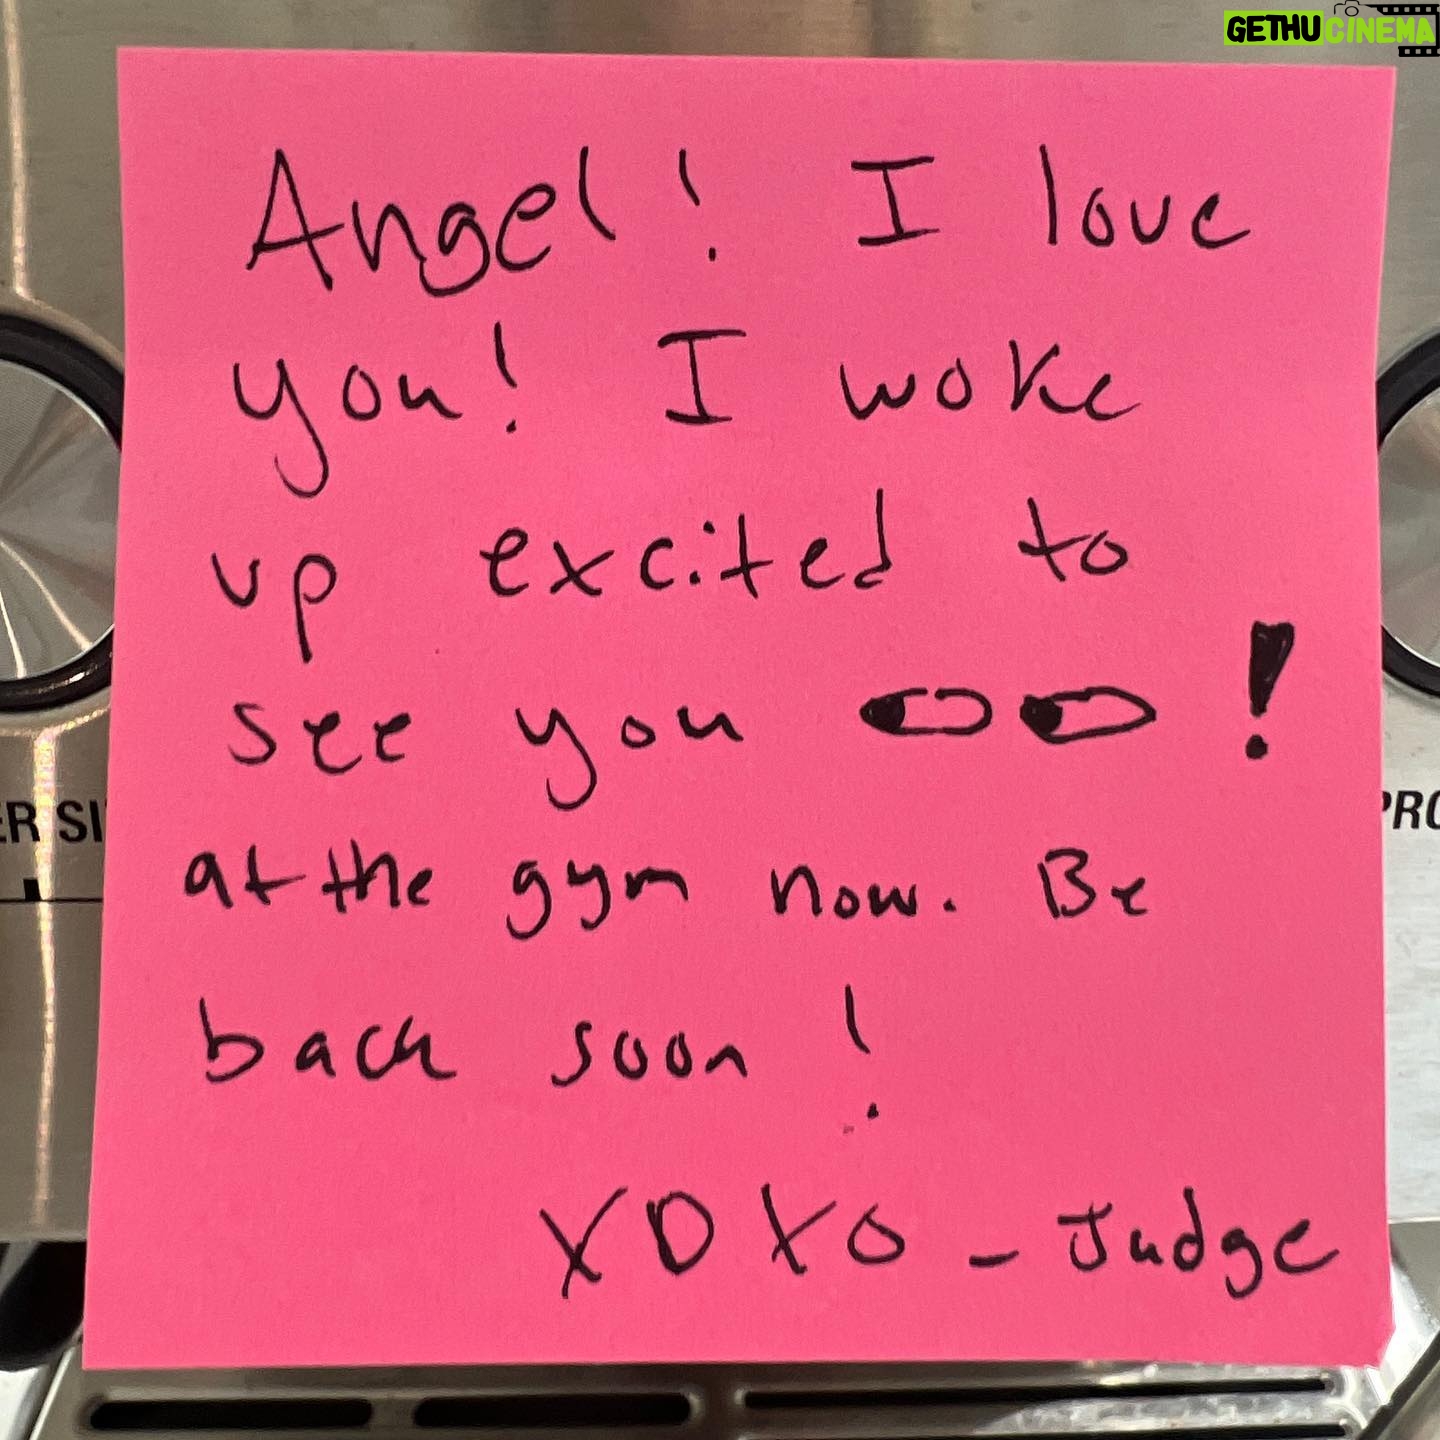 GETHUCINEMA
Angel! I love
you! I woke
up excited to
see you !
at the gym now. Be
back soon!
ER SI
PRO
XOXO - Judge